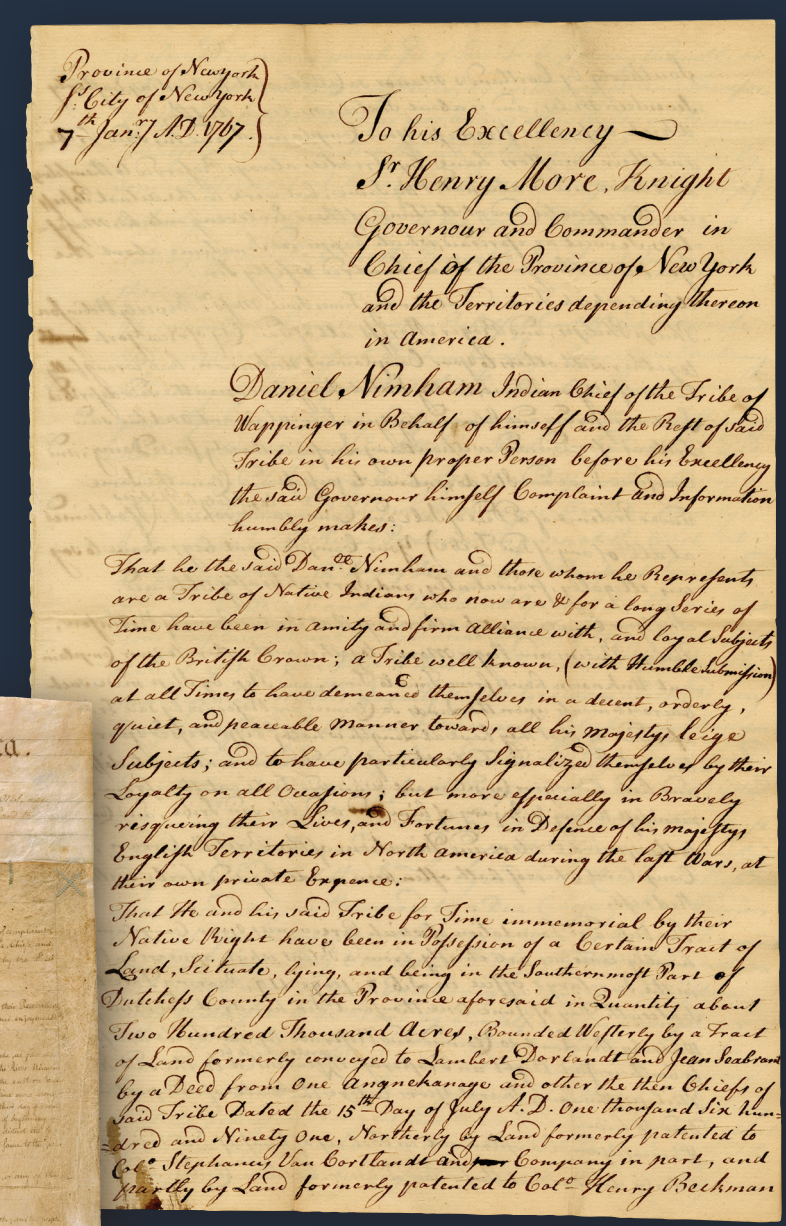 Province of New york
Ss. City of New York
7th Janry A.D. 1767.
To his Excellency
Sr. Henry More, Knight
Governour and Commander in
Chief of the Province of New York
and the Territories depending thereon
in America.
Daniel Nimham Indian Chief of the Tribe of
Wappinger in Behalf of himself and the Rest of said
Tribe in his own proper Person before his Excellency
the said Governour himself Complaint and Information
humbly makes:
That he the said Danel. Nimham and those whom he Represents
are a Tribe of Native Indians who now are & for a long Series of
Time have been in amity and firm alliance with, and loyal Subjects
of the British Crown; a Tribe well known, (with Humble Submission)
at all Times to have demeaned themselves in a decent, orderly,
quiet, and peaceable manner towards all his majestys leige
Subjects; and to have particularly Signalized themselves by their
Loyalty on all Occasions; but more especially in Bravely
risqueing their Lives, and Fortunes in Defence of his majestys
English Territories in North america during the last Wars, at
their own private Expence:
That He and his said Tribe for Time immemorial by their
Native Right have been in Possession of a Certain Tract of
Land, Scituate, lying, and being in the Southernmost Part of
Dutchess County in the Province aforesaid in Quantity about
Two Hundred Thousand Acres, Bounded Westerly by a Tract
of Land formerly conveyed to Lambert Dorlandt and Jean Seabrant
by a Deed from One Angnekanage and other the then Chiefs of
said Tribe Dated the 15th Day of July A.D. One thousand Six hun=
=dred and Ninety One, Northerly by Land formerly patented to
Colo. Stephancis Van Cortlandt and Company in part, and
partly by Land formerly patented to Colo. Henry Beekman